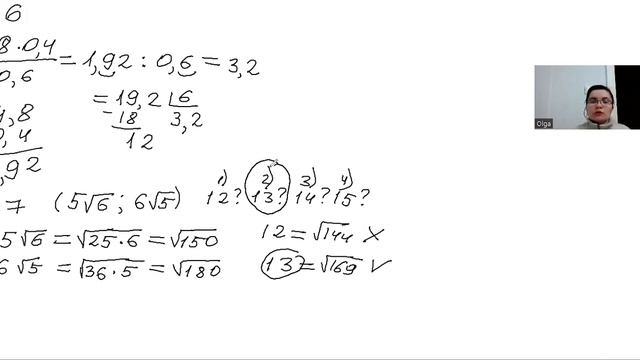 6
8·0,4
0,6 = 1,92 : 0,6 = 3,2
= 19,2 6
- 18 3,2
12
4,8
0,4
,92
7 (5√6 ; 6√5) 1) 12? 2) 13? 3) 14? 4) 15?
5√6 = √25·6 = √150 12 = √144 ×
6√5 = √36·5 = √180 13 = √169 ✓
Olga